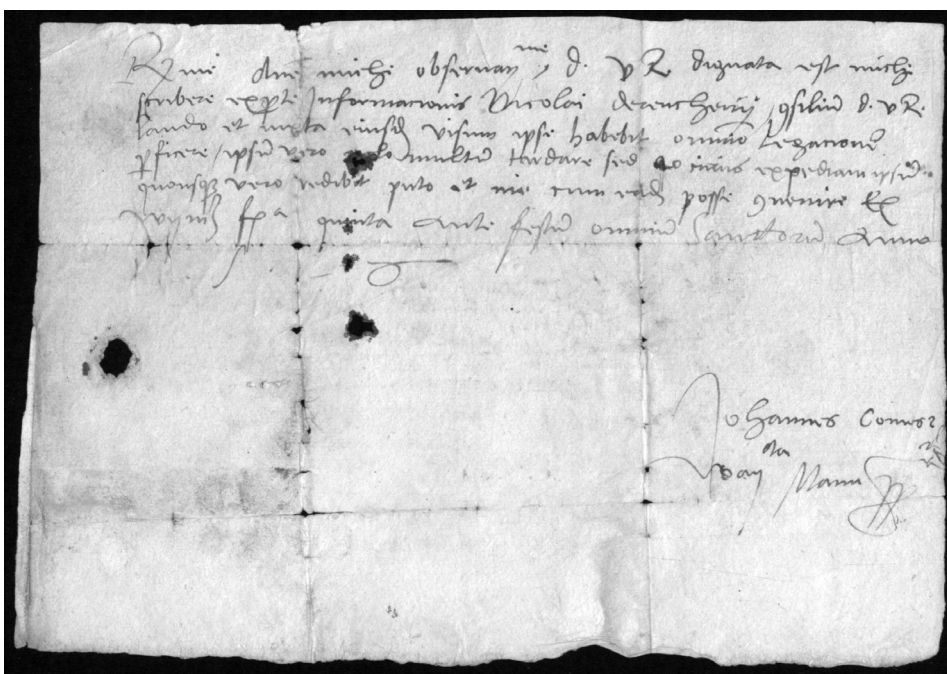 R me dne michi observan me d. v R. dignata est michi
scribere ex pte Informacionis Nicolai derencheny, gsiliu d. v R.
laudo et iuxta eiusd visum ipse habebit omnino legacione
pficere / ipsu vero multu tardare sed cicius expediam ipsu
quousqz vero redibit puto et me cum ead posse gvenire Ex
fe a quinta Ante festu omniu Sanctoru Anno
Johannes Comes
Manu pp